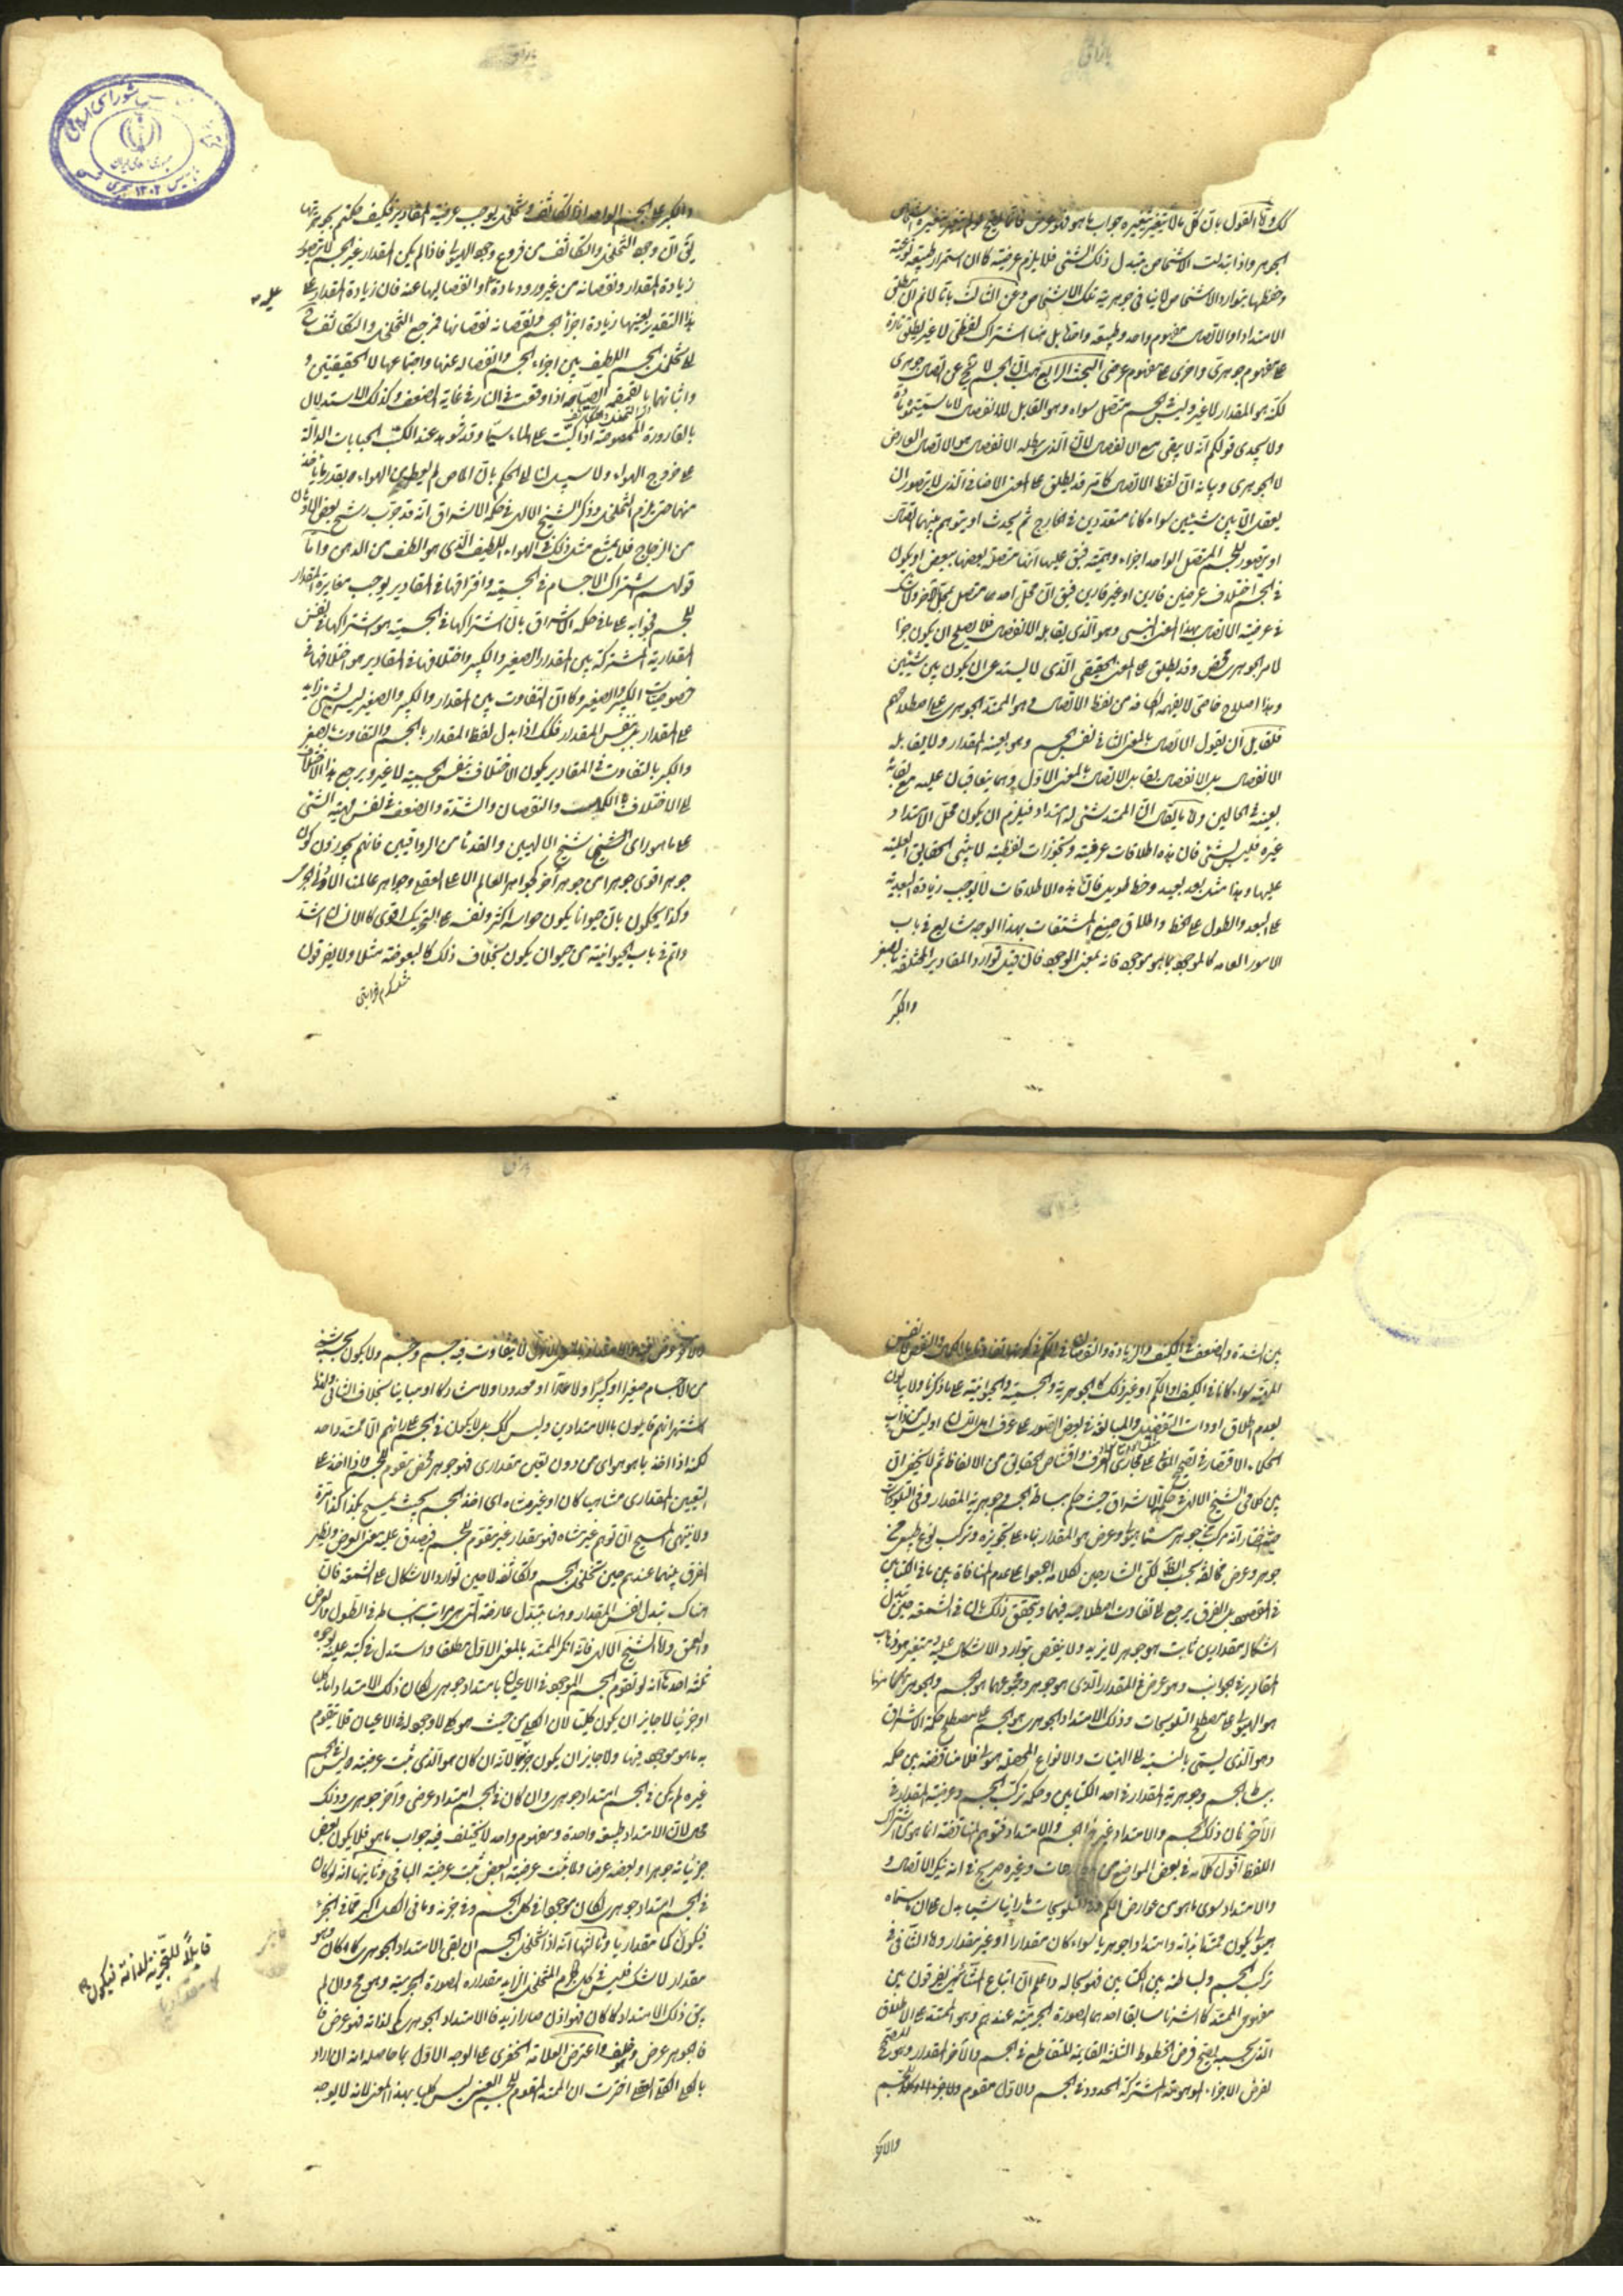 القول بان كل ما لا يتغير بتغيره جواب ما هو فهو عرض
الجوهر واذا تبدلت الاشخاص بتبدل ذلك الشئ فلا يلزم عرضيته كما ان استمرار طبيعة نوعية
وحفظها بتوارد الاشخاص لا ينافى جوهرية تلك الاشخاص وعن الثالث بانا لا نم ان يطلق
الامتداد او الاتصال مفهوم واحد وطبيعة واحدة بل هنا اشتراك لفظى لا غير يطلق تارة
على مفهوم جوهرى واخرى على مفهوم عرضى البحث الرابع هب ان الجسم لا يخ عن اتصال جوهرى
لكنه هو المقدار لا غير وليس فى الجسم متصل سواه وهو القابل للانفصال لا ما سميتموه مادة
ولا يجدى قولكم انه لا يبقى مع الانفصال لان الذى يبطله الانفصال هو الاتصال العارض
لا الجوهرى وبيانه ان لفظ الاتصال كما مر قد يطلق على المعنى الاضافى الذى لا يتصور ان
يعقل الا بين شيئين سواء كانا متعددين فى الخارج ثم يحدث او يتوهم بينهما اتصال
او يتصور للجسم المتصل الواحد اجزاء وهمية فيق عليها انها متصلة بعضها ببعض او يكون
فى الجسم اختلاف عرضين قارين او غير قارين فيق ان محل احدهما متصل بمحل الاخر ولا شك
فى عرضية الاتصال بهذا المعنى النسبى وهو الذى يقابله الانفصال فلا يصلح ان يكون جزء
لامر جوهرى محض وقد يطلق على المعنى الحقيقى الذى لا يستدعى ان يكون بين شيئين
وهذا اصطلاح خاص لا يفهمه الكافة من لفظ الاتصال وهو الممتد الجوهرى على اصطلاحهم
فلقابل ان يقول الاتصال بالمعنى الثانى نفس الجسم وهو بعينه المقدار ولا يقابله
الانفصال بل الانفصال يقابل الاتصال بالمعنى الاول وهما يتعاقبان عليه مع بقائه
بعينه فى الحالين ولا ما يقال ان الممتد شئ له امتداد فيلزم ان يكون محل الامتداد
غيره فليس بشئ فان هذه اطلاقات عرفية وتجوزات لفظية لا يبتنى الحقايق العلمية
عليها وهذا مثل بعد بعيد وخط طويل فان هذه الاطلاقات لا يوجب زيادة البعدية
على البعد والطول على الخط واطلاق صيغ المشتقات بهذا الوجه شايع فى باب
الامور العامة كالموجود بما هو موجود فانه بمعنى الوجود فان قيل توارد المقادير المختلفة بالصغر
والكبر
والكبر على الجسم الواحد اذا تكاثف وتخلخل يوجب عرضية المقادير فكيف حكتم بجوهريتها
يق ان وجود التخلخل والتكاثف من فروع وجود الهيولى فاذا لم يكن المقدار غير الجسم لا يتصور
زيادة المقدار ونقصانه من غير ورود مادة او انفصالها عنه فان زيادة المقدار على
هذا التقدير بعينها زيادة اجزاء الجسم ونقصانه نقصانها فمرجع التخلخل والتكاثف
تخلل الجسم اللطيف بين اجزاء الجسم وانفصاله عنها واجتماعها لا الحقيقيتين
واثباتهما بالقمقمة الصياحة اذا وقعت فى النار فى غاية الضعف وكذلك الاستدلال
بالقارورة الممصوصة اذا كبت على الماء سيما وقد شوهد عند الكب الحبابات الدالة
على خروج الهواء ولا سبيل لنا الى الحكم بان الماص لم يعط من الهواء بقدر ما ياخذ
منها حتى يلزم التخلخل وذكر الشيخ الالهى فى حكمة الاشراق انه قد جرب رشح بعض الادهان
من الزجاج فلا يمتنع مثل ذلك فى الهواء اللطيف الذى هو الطف من الدهن واما
قولهم اشتراك الاجسام فى الجسمية وافتراقها فى المقادير يوجب مغايرة المقدار
للجسم فجوابه على ما فى حكمة الاشراق بان اشتراكها فى الجسمية هو اشتراكها فى نفس
المقدارية المشتركة بين المقدار الصغير والكبير واختلافها فى المقادير هو اختلافها فى
خصوصيات الكبير والصغير وكما ان التفاوت بين المقدار الكبير والصغير ليس بشئ زايد
على المقدار بل بنفس المقدار فكذلك اذا بدل لفظ المقدار بالجسم والتفاوت بالصغر
والكبر بالتفاوت فى المقادير يكون الاختلاف بنفس الجسمية لا غير ويرجع هذا الاختلاف
الى الاختلاف بالكمال والنقصان والشدة والضعف فى نفس مهية الشئ
على ما هو راى الشيخ شيخ الالهيين والقدماء من الرواقيين فانهم يجوزون كون
جوهر اقوى جوهرا من جوهر آخر كجواهر العالم الاعلى العقلى وجواهر عالمنا الادنى الجرمى
وكذا يحكون بان حيوانا يكون حواسه اكثر ونفسه على التحريك اقوى كالانسان اشد
واتم فى باب الحيوانية من حيوان يكون بخلاف ذلك كالبعوضة مثلا ولا يفرقون
بين الشدة والضعف فى الكيف والزيادة والنقصان فى الكم فى كونهما تفاوتا بالكمال والنقص فى نفس
المهية سواء كانا فى الكيف او الكم او غير ذلك كالجوهرية والجسمية والحيوانية على ما ذكرنا ولا يبالون
بعدم اطلاق ادوات التفضيل والمبالغة فى بعض الصور على عرف اهل اللسان اذ ليس من داب
الحكماء الاقتصار فى تصحيح المعانى على مجارى العرف واقتناص الحقايق من الالفاظ ثم لا يخفى ان
بين كلامى الشيخ الالهى فى حكمة الاشراق حيث حكم ببساطة الجسم وجوهرية المقدار وفى التلويحات
حيث اختار انه مركب من جوهر سماه هيولى وعرض هو المقدار بناء على تجويزه تركب نوع طبيعى من
جوهر وعرض مخالفة بحسب الظاهر لكن الشارحين لكلامه اجمعوا على عدم المنافاة بين ما فى الكتابين
فى المقصود بل الفرق يرجع الى تفاوت اصطلاحيه فيهما وتحقق ذلك بان فى الشمعة حين تبدل
اشكالها مقدارين ثابت هو جوهر لا يزيد ولا ينقص بتوارد الاشكال عليه ومتغير هو ذهاب
المقادير فى الجوانب وهو عرض فى المقدار الذى هو جوهر ومجموعهما هو الجسم والجوهر منهما
هو الهيولى على مصطلح التلويحات وذلك الامتداد الجوهرى هو الجسم على مصطلح حكمة الاشراق
وهو الذى يسمى بالنسبة الى الهيئات والانواع المحصلة هيولى فلا مناقضة بين حكمه
ببساطة الجسم وجوهرية المقدار فى احد الكتابين وحكمه بتركب الجسم وعرضية المقدار فى
الاخر فان ذلك الجسم والامتداد غير هذا الجسم والامتداد فتوهم المناقضة انما هو من اشتراك
اللفظ اقول كلامه فى بعض المواضع من المطارحات وغيره صريح فى انه ينكر الاتصال
والامتداد سوى ما هو من عوارض الكم وفى التلويحات ما راينا شيئا يدل على ان ما سماه
هيولى يكون ممتدا بذاته وامتدادا جوهريا سواء كان مقدارا او غير مقدار والتنافى فى
تركب الجسم وبساطته بين الكتابين فهو بحاله واعلم ان اتباع المشائين يفرقون بين
مفهومى الممتد كما اشرنا سابقا احدهما الصورة الجرمية عندهم وهو الممتد على الاطلاق
الذى بحسبه يصح فرض الخطوط الثلثة القائمة التقاطع فى الجسم والآخر المقدار وهو المصحح
لفرض الاجزاء الموهومة المشتركة الحدود فى الجسم والاول مقوم والاخر
والآخر
لا يتفاوت فيه جسم وجسم ولا يكون بحسبه شئ
من الاجسام صغيرا او كبيرا ولا عادا او معدودا ولا مشاركا او مباينا بخلاف الثانى وانما
اشتهر انهم قايلون بالامتدادين وليس كذلك بل لا يكون فى الجسم على رايهم الا ممتد واحد
لكنه اذا اخذ بما هو هو اى من دون تعين مقدارى فهو جوهر محض مقوم للجسم واذا اخذ على
التعيين المقدارى متناهيا كان او غير متناه اى اخذ الجسم بحيث يمسح بكذا كذا مرة
ولا ينتهى المسح ان توهم غير متناه فهو مقدار غير مقوم للجسم فيصدق عليه معنى العرض ويظهر
الفرق بينهما عندهم حين تخلخل الجسم وتكاثفه لا حين توارد الاشكال على الشمعة فان
هناك تبدل نفس المقدار وهنا يتبدل عارضه التى هى مراتب انبساطه فى الطول والعرض
والعمق واما الشيخ الالهى فانه انكر الممتد بالمعنى الاول مطلقا واستدل فى كتبه عليه بوجوه
ثلثة احدها انه لو تقوم الجسم الموجود فى الاعيان بامتداد جوهرى لكان ذلك الامتداد اما كليا
او جزئيا لا جايز ان يكون كليا لان الكلى من حيث هو كلى لا وجود له فى الاعيان فلا يتقوم
به ما هو موجود فيها ولا جايز ان يكون جزئيا لانه ان كان هو الذى ثبت عرضيته وليس فى الجسم
غيره لم يكن فى الجسم امتداد جوهرى وان كان فى الجسم امتداد عرضى وآخر جوهرى وذلك
محال لان الامتداد طبيعة واحدة ومفهوم واحد لا يختلف فيه جواب ما هو فلا يكون بعض
جزئياته جوهرا وبعضه عرضا ولما ثبت عرضية البعض ثبت عرضية الباقى وثانيها انه لو كان
فى الجسم امتداد جوهرى لكان موجودا فى كل الجسم وفى جزئه وما فى الكل اكبر مما فى الجزء
فيكون كما مقداريا وثالثها انه اذا تخلخل الجسم ان بقى الامتداد الجوهرى كما كان وهو
مقدار لا شك فليس فى كل الجسم المتخلخل الزايد مقداره الصورة الجرمية وهو مح وان لم
يبق ذلك الامتداد كما كان فهو اذن صار ازيد فالامتداد الجوهرى كم لذاته فهو عرض
فالجوهر عرض هف واعترض العلامة الخفرى على الوجه الاول بما حاصله انه ان اراد
بالكلى الكلى العقلى اخترت ان الممتد المقوم للجسم العينى ليس كليا بهذا المعنى لانه لا يوجد
قابلا للتجزية لذاته فيكون